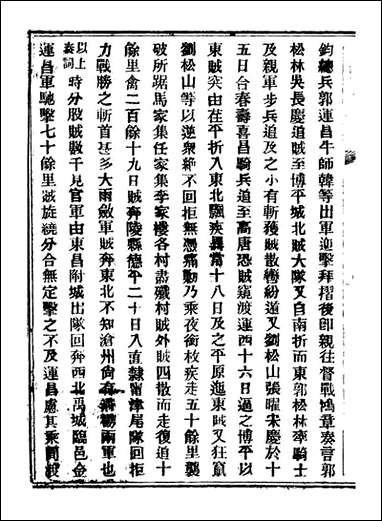 鈞總兵郭運昌牛師韓等出軍迎擊拜摺後卽親往督戰鴻章奏言郭
松林吳長慶追賊至博平城北賊大隊又自南折而東郭松林率騎士
及親軍步兵追及之小有斬獲賊散響紛遁又劉松山張曜宋慶於十
五日合春壽喜昌騎兵追至高唐恐賊窺渡運西十六日逼之博平以
東賊突由在平折入東北飄疾異常十八日及之平原迤東賊又狂竄
劉松山等以逆衆絶不回拒無憑痛勦乃乘夜銜枚疾走五十餘里襲
破所踞馬家集任家集李家樓各村肅殲村賊外賊四散而走復追十
餘里禽二百餘十九日賊奔陵縣德平二十日入直隸甯津尾隊回拒
力戰勝之斬首甚多大雨斂軍賊奔東北不知滄州尙有潘鬬兩軍也
以上奏詞時分股賊數千見官軍由東昌附城出隊回奔西北禹城臨邑金
運昌軍馳擊七十餘里賊旋繞分合無定擊之不及運昌慮其乘間